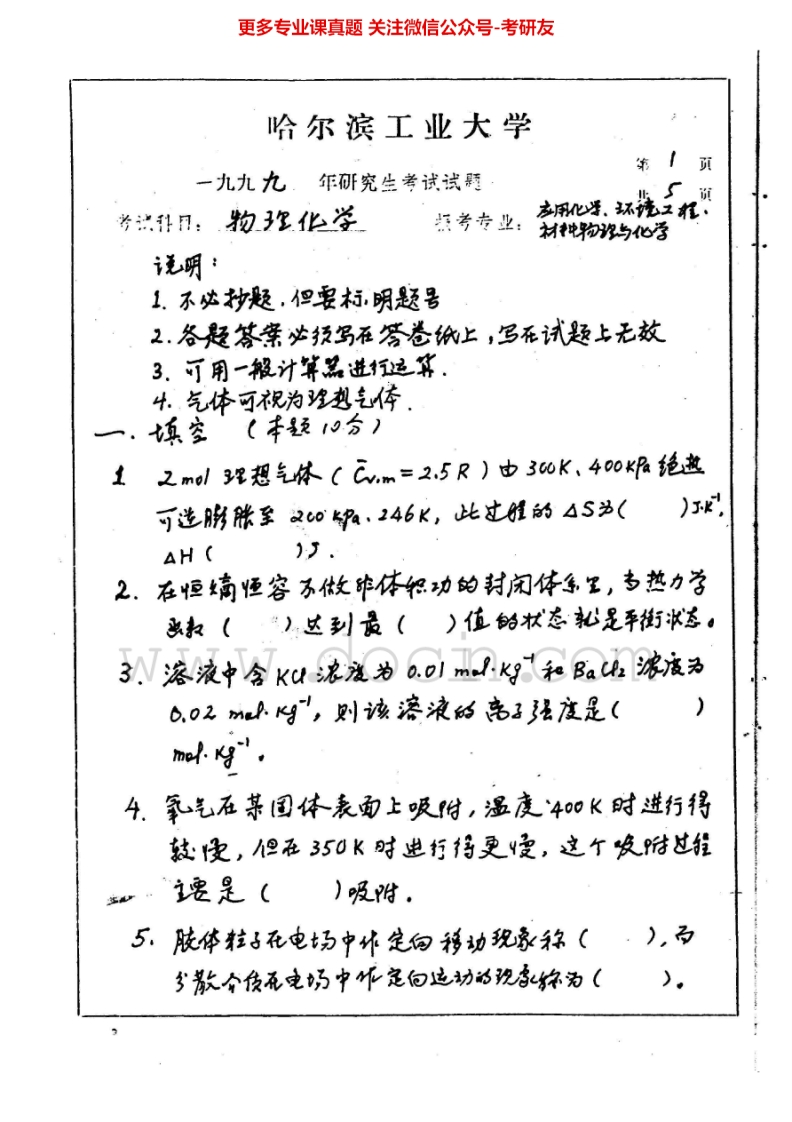 更多专业课真题 关注微信公众号-考研友
哈尔滨工业大学
第 1 页
一九九九 年研究生考试试题
共 5 页
考试科目： 物理化学 报考专业： 应用化学、环境工程、
材料物理与化学
说明：
1. 不必抄题，但要标明题号
2. 各题答案必须写在答卷纸上，写在试题上无效
3. 可用一般计算器进行运算.
4. 气体可视为理想气体.
一、填空 （本题10分）
1 2mol 理想气体（C̄v,m=2.5R）由 300K、400kPa 绝热
可逆膨胀至 200kPa、246K，此过程的 ΔS为（ ）J·K⁻¹,
ΔH（ ）J.
2. 在恒熵恒容不做非体积功的封闭体系里，当热力学
函数（ ）达到最（ ）值的状态就是平衡状态。
www.docin.com
3. 溶液中含 KCl 浓度为 0.01 mol·kg⁻¹ 和 BaCl₂ 浓度为
0.02 mol·kg⁻¹，则该溶液的离子强度是（ ）
mol·kg⁻¹。
4. 氧气在某固体表面上吸附，温度400K时进行得
较慢，但在 350K 时进行得更慢，这个吸附过程
主要是（ ）吸附.
5. 胶体粒子在电场中作定向移动现象称（ ），而
分散介质在电场中作定向运动的现象称为（ ）。